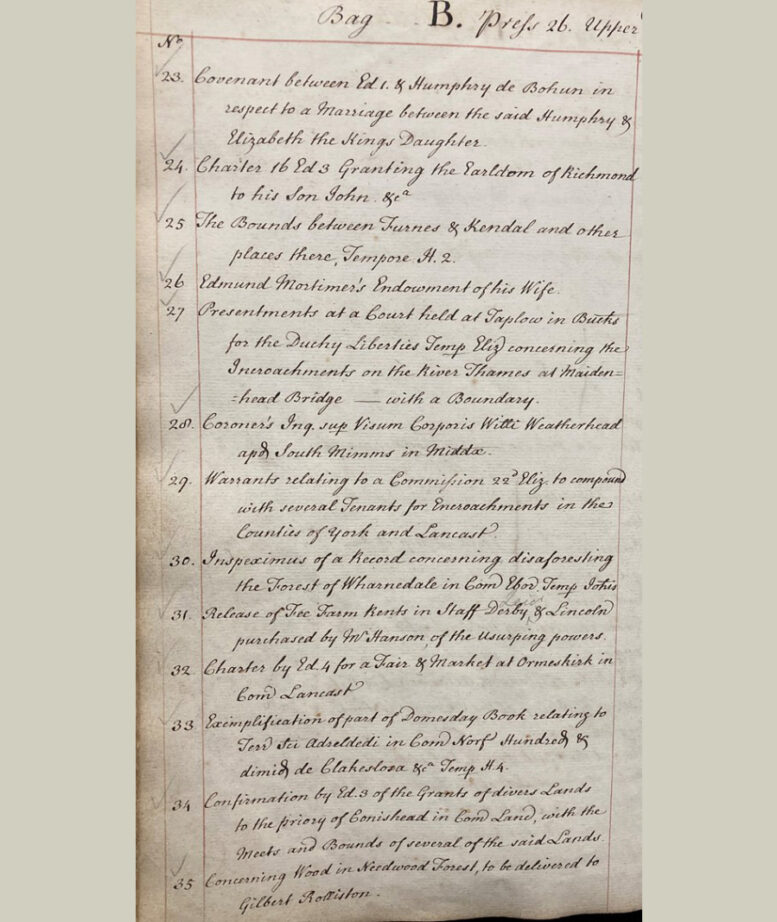 Bag B. Press 26. Upper
No
23. Covenant between Ed 1. & Humphry de Bohun in
respect to a Marriage between the said Humphry &
Elizabeth the Kings Daughter.
24. Charter 16 Ed 3 Granting the Earldom of Richmond
to his Son John. &ca
25 The Bounds between Furnes & Kendal and other
places there, Tempore H. 2.
26 Edmund Mortimer's Endowment of his Wife.
27 Presentments at a Court held at Taplow in Bucks
for the Duchy Liberties Temp Eliz concerning the
Incroachments on the River Thames at Maiden=
=head Bridge — with a Boundary.
28. Coroner's Inq. sup Visum Corporis Willi Weatherhead
apd South Mimms in Middx.
29. Warrants relating to a Commission 22d Eliz. to compound
with several Tenants for Encroachments in the
Counties of York and Lancast.
30. Inspeximus of a Record concerning disaforesting
the Forest of Wharnedale in Com Ebor. Temp Johis
31. Release of Fee Farm Rents in Staff Derby, & Lincoln
purchased by Mr Hanson, of the Usurping powers.
32 Charter by Ed. 4 for a Fair & Market at Ormeskirk in
Com Lancast
33 Exemplification of part of Domesday Book relating to
Terr Sci Adreldedi in Com Norf Hundred &
dimid de Clakeslosa &ca Temp H. 4.
34 Confirmation by Ed. 3 of the Grants of divers Lands
to the priory of Conishead in Com Land, with the
Meets and Bounds of several of the said Lands.
35 Concerning Wood in Needwood Forest, to be delivered to
Gilbert Rolliston.